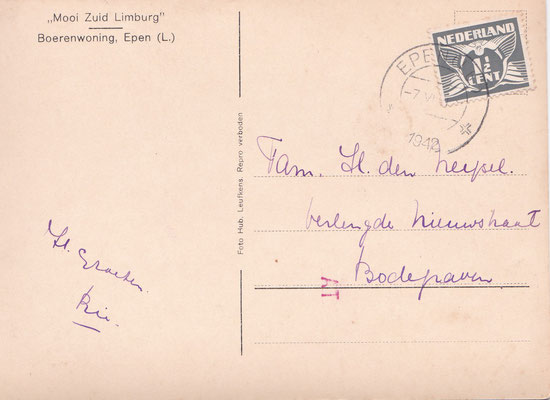 „Mooi Zuid Limburg"
Boerenwoning, Epen (L.)
Foto Hub. Leufkens. Repro verboden
NEDERLAND
1½
CENT
EPEN
1942
Fam. H. den Uyl.
Verlengde Nieuwstraat
Bodegraven
H. Groeten
Rie.